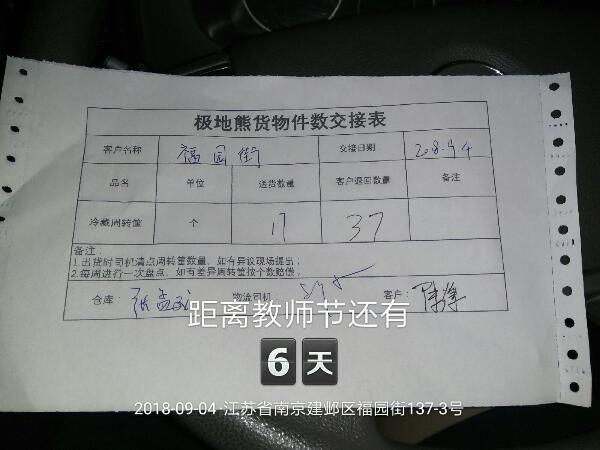 极地熊货物件数交接表
客户名称 福园街 交接日期
品名 单位 送货数量 客户退回数量 备注
冷藏周转筐 个 17 37
备注:
1.出货时司机清点周转筐数量、如有异议现场提出;
2.每周进行一次盘点，如有差异周转筐按个数赔偿;
仓库: 物流司机 客户:
距离教师节还有
6天
2018-09-04·江苏省南京建邺区福园街137-3号